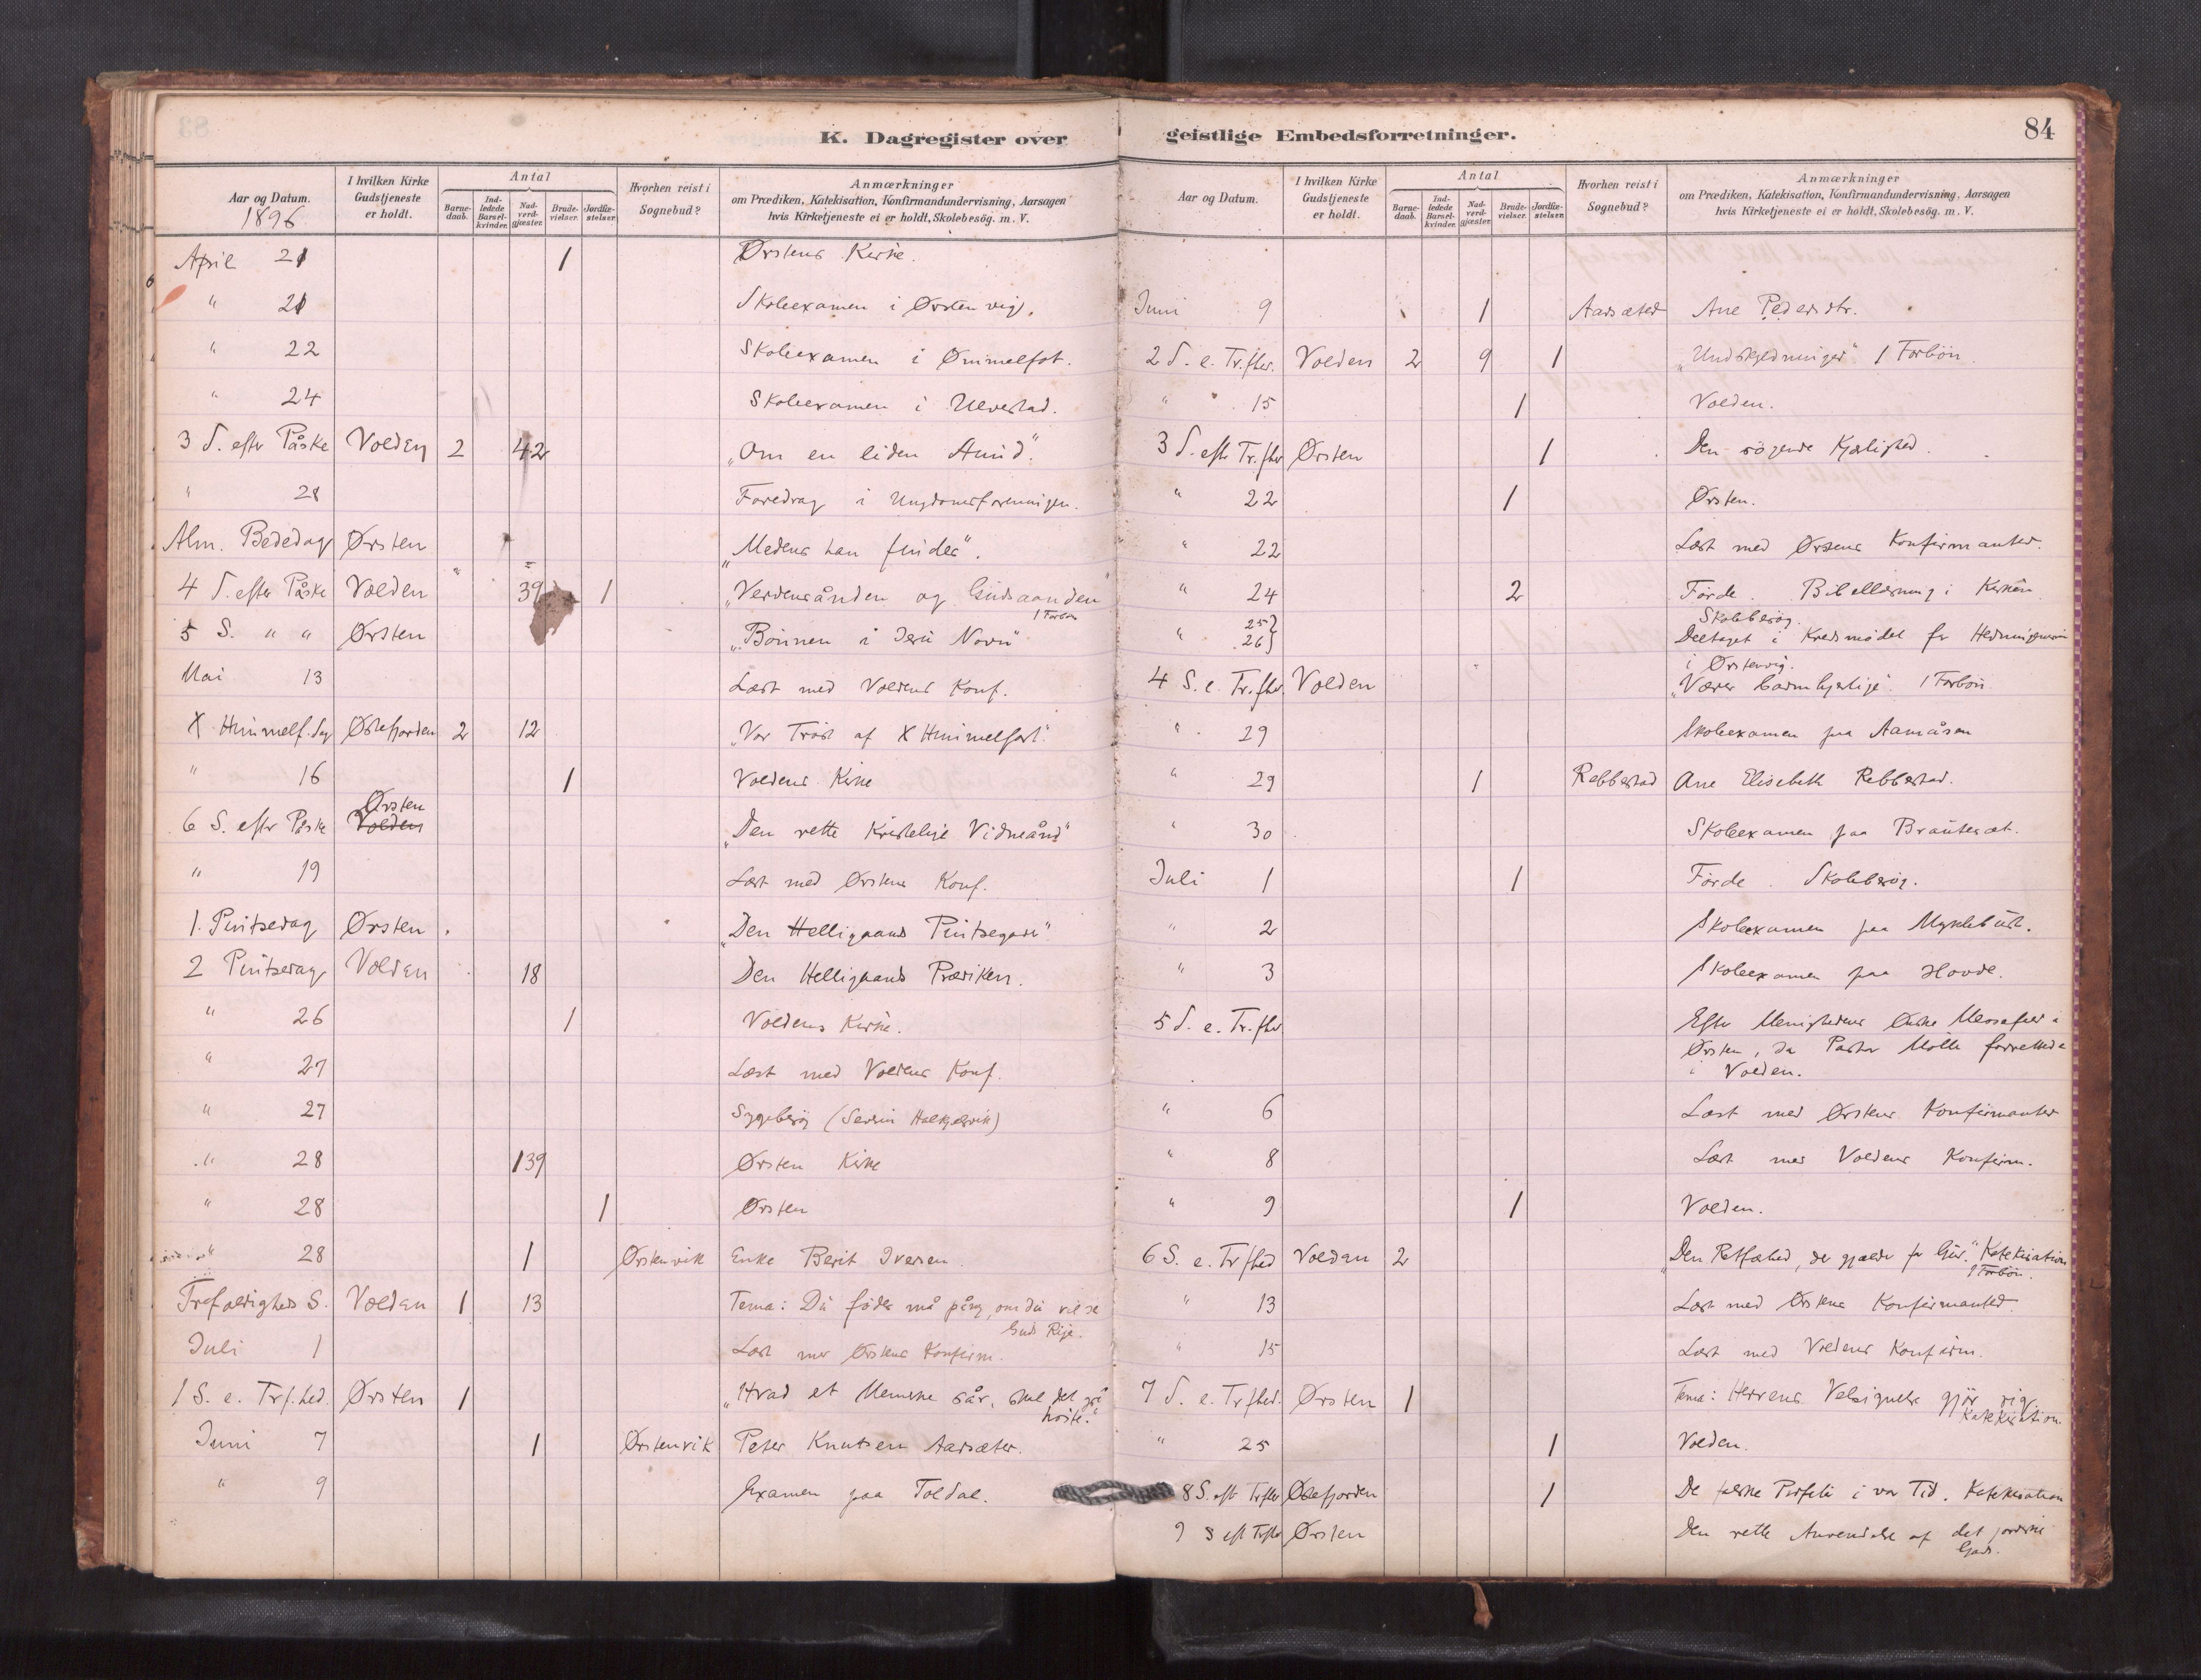 K. Dagregister over
Aar og Datum.
1896
I hvilken Kirke Gudstjeneste er holdt.
Antal
Barne-daab.
Ind-ledede Barsel-kvinder.
Nad-verd-gjæster.
Brude-vielser.
Jordfæ-stelser.
Hvorhen reist i Sognebud?
Anmærkninger
om Prædiken, Katekisation, Konfirmandundervisning, Aarsagen
hvis Kirketjeneste ei er holdt, Skolebesög. m. V.
April 21 1 Ørstens Kirke.
" 21 Skoleexamen i Ørstenvig.
" 22 Skoleexamen i Ømmelfot.
" 24 Skoleexamen i Ulvestad.
3 S. efter Påske Volden 2 42 "Om en liden Stund".
" 28 Foredrag i Ungdomsforeningen.
Alm. Bededag Ørsten "Medens han findes".
4 S. efter Påske Volden 39 1 "Verdensånden og Gudsaanden"
1 Forbön
5 S. " " Ørsten "Bönnen i Jesu Navn"
Mai 13 Læst med Voldens Konf.
X Himmelf. dag Østefjorden 2 12 "Vor Tröst af X Himmelfart".
" 16 1 Voldens Kirke
Ørsten
6 S. efter Påske Volden "Den rette kristelige Vidneånd"
" 19 Læst med Ørstens Konf.
1. Pintsedag Ørsten "Den Helligaands Pintsegave"
2 Pintsedag Volden 18 Den Helligaands Prædiken.
" 26 1 Voldens Kirke.
" 27 Læst med Voldens Konf.
" 27 Sygebesög (Severin Halkjelsvik)
" 28 139 Ørsten Kirke
" 28 1 Ørsten
" 28 1 Ørstenvik Enke Berit Iversen
Trefoldigheds S. Volden 1 13 Tema: Du fødes må påny, om du vil se
Guds Rige.
Juli 1 Læst med Ørstens Konfirm.
1 S. e. Trf.hed. Ørsten 1 "Hvad et Menneske sår, skal det også
höste."
Juni 7 1 Ørstenvik Peter Knutsen Aarsæter.
" 9 Examen paa Foldal.
geistlige Embedsforretninger.
84
Aar og Datum.
I hvilken Kirke Gudstjeneste er holdt.
Antal
Barne-daab.
Ind-ledede Barsel-kvinder.
Nad-verd-gjæster.
Brude-vielser.
Jordfæ-stelser.
Hvorhen reist i Sognebud?
Anmærkninger
om Prædiken, Katekisation, Konfirmandundervisning, Aarsagen
hvis Kirketjeneste ei er holdt, Skolebesög. m. V.
Juni 9 1 Aarsæter Ane Pedersdtr.
2 S. e. Tr.fhed. Volden 2 9 1 "Undskyldninger" 1 Forbön
" 15 1 Volden.
3 S. eft Tr.fhed Ørsten 1 Den søgende Kjærlighed.
" 22 1 Ørsten.
" 22 Læst med Ørstens Konfirmanter.
" 24 2 Förde. Bibellæsning i Kirken
Skolebesög.
" 25 } 26 } Deltaget i Kredsmödet for Hedningemission
i Ørstenvig.
4 S. e. Tr.fhed Volden "Værer barmhjertige". 1 Forbön
" 29 Skoleexamen paa Aamåsen
" 29 1 Rebbestad Ane Elisebeth Rebbestad.
" 30 Skoleexamen paa Brautesæt.
Juli 1 1 Förde. Skolebesög.
" 2 Skoleexamen paa Myklebust.
" 3 Skoleexamen paa Hovde.
5 S. e. Tr.fhed Efter Menighedens Ønske Messefald i
Ørsten, da Pastor Molle forrettede
i Volden.
" 6 Læst med Ørstens Konfirmanter
" 8 Læst med Voldens Konfirm.
" 9 1 Volden.
6 S. e. Trfhed Volden 2 "Den Retfæhed, der gjælder for Gud." Katekisation
1 Forbön.
" 13 Læst med Ørstens Konfirmanter.
" 15 Læst med Voldens Konfirm.
7 S. e. Trfhed. Ørsten 1 Tema: Herrens Velsignelse gjör rig.
Katekisation.
" 25 1 Volden.
8 S. eft Trfhed Østefjorden 1 De falske Profeter i vor Tid. Katekisation
9 S eft Trfhd Ørsten Den rette Anvendelse af det jordiske
Gods.